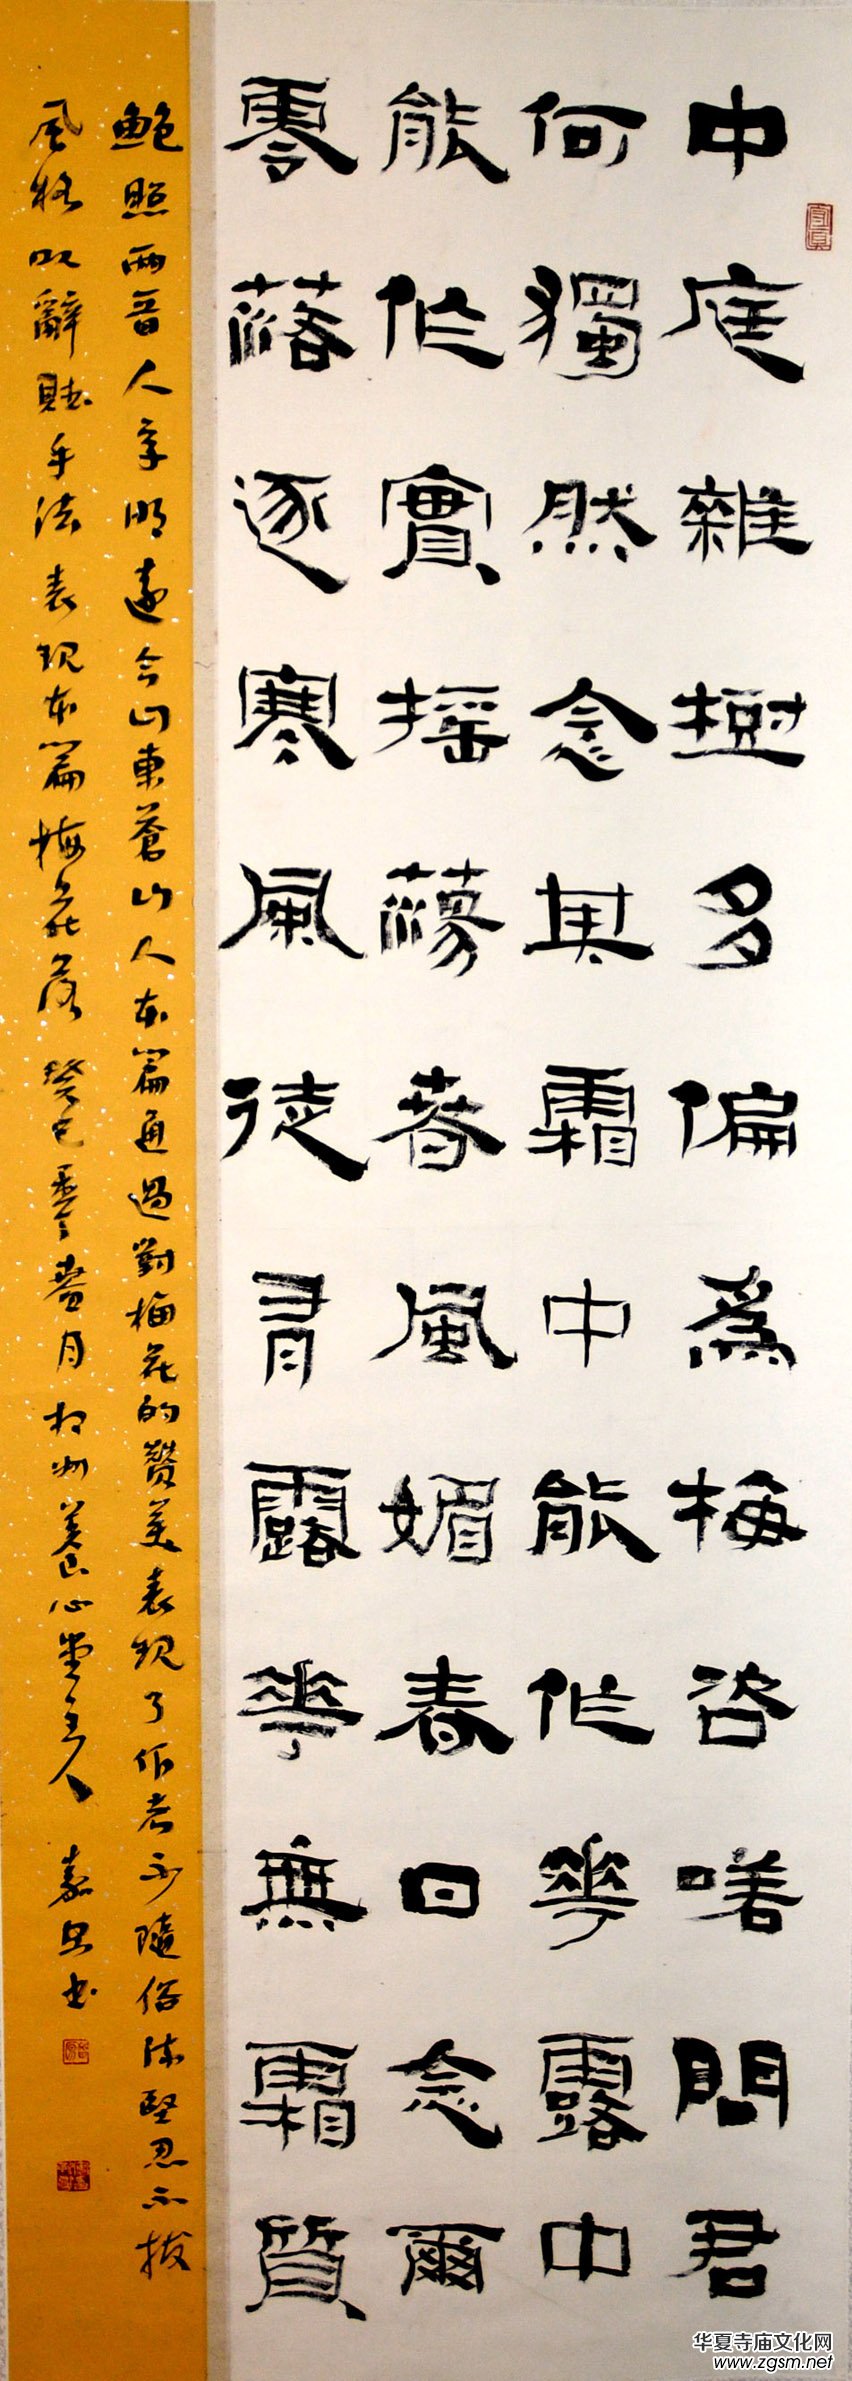 中庭雜樹多偏爲梅咨嗟問君
何獨然念其霜中能作華露中
能作實搖蕩春風媚春日念爾
零落逐寒風徒有露華無霜質
鮑照兩晉人字明遠今山東蒼山人本篇通過對梅花的贊美表現了作者不隨俗流堅忍不拔
風格以辭賦手法表現本篇梅花落 癸巳春月養心堂主人 嘉書
华夏寺庙文化网
www.zgsm.net